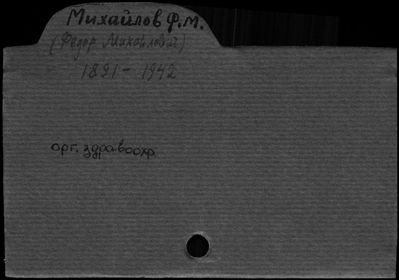 Михайлов Ф.М.
(Федор Михайлович)
1891 - 1942
орг. здравоохр.